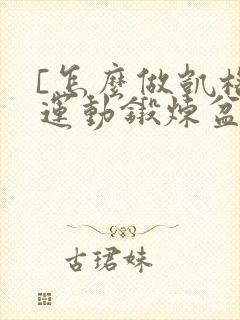 [怎麼做凱格
運動鍛煉盆
古珺妹